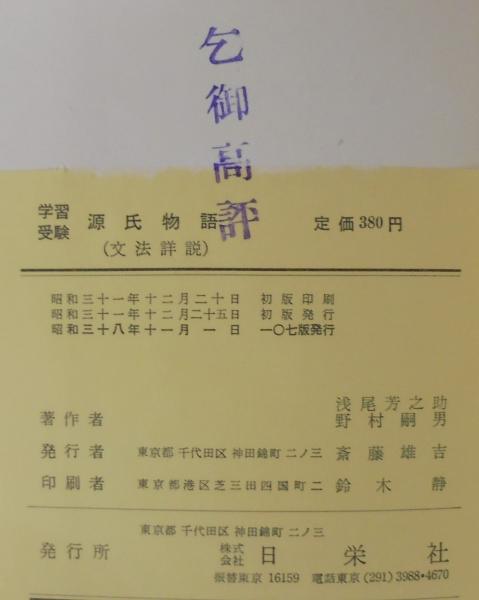 乞御高評
学習
受験 源氏物語 定価380円
(文法詳説)
昭和三十一年十二月二十日 初版印刷
昭和三十一年十二月二十五日 初版発行
昭和三十八年十一月一日 一〇七版発行
浅尾芳之助
著作者 野村嗣男
発行者 東京都千代田区神田錦町二ノ三 斎藤雄吉
印刷者 東京都港区芝三田四国町二 鈴木静
東京都千代田区神田錦町二ノ三
発行所 株式会社 日栄社
振替東京 16159 電話東京 (291) 3988・4670